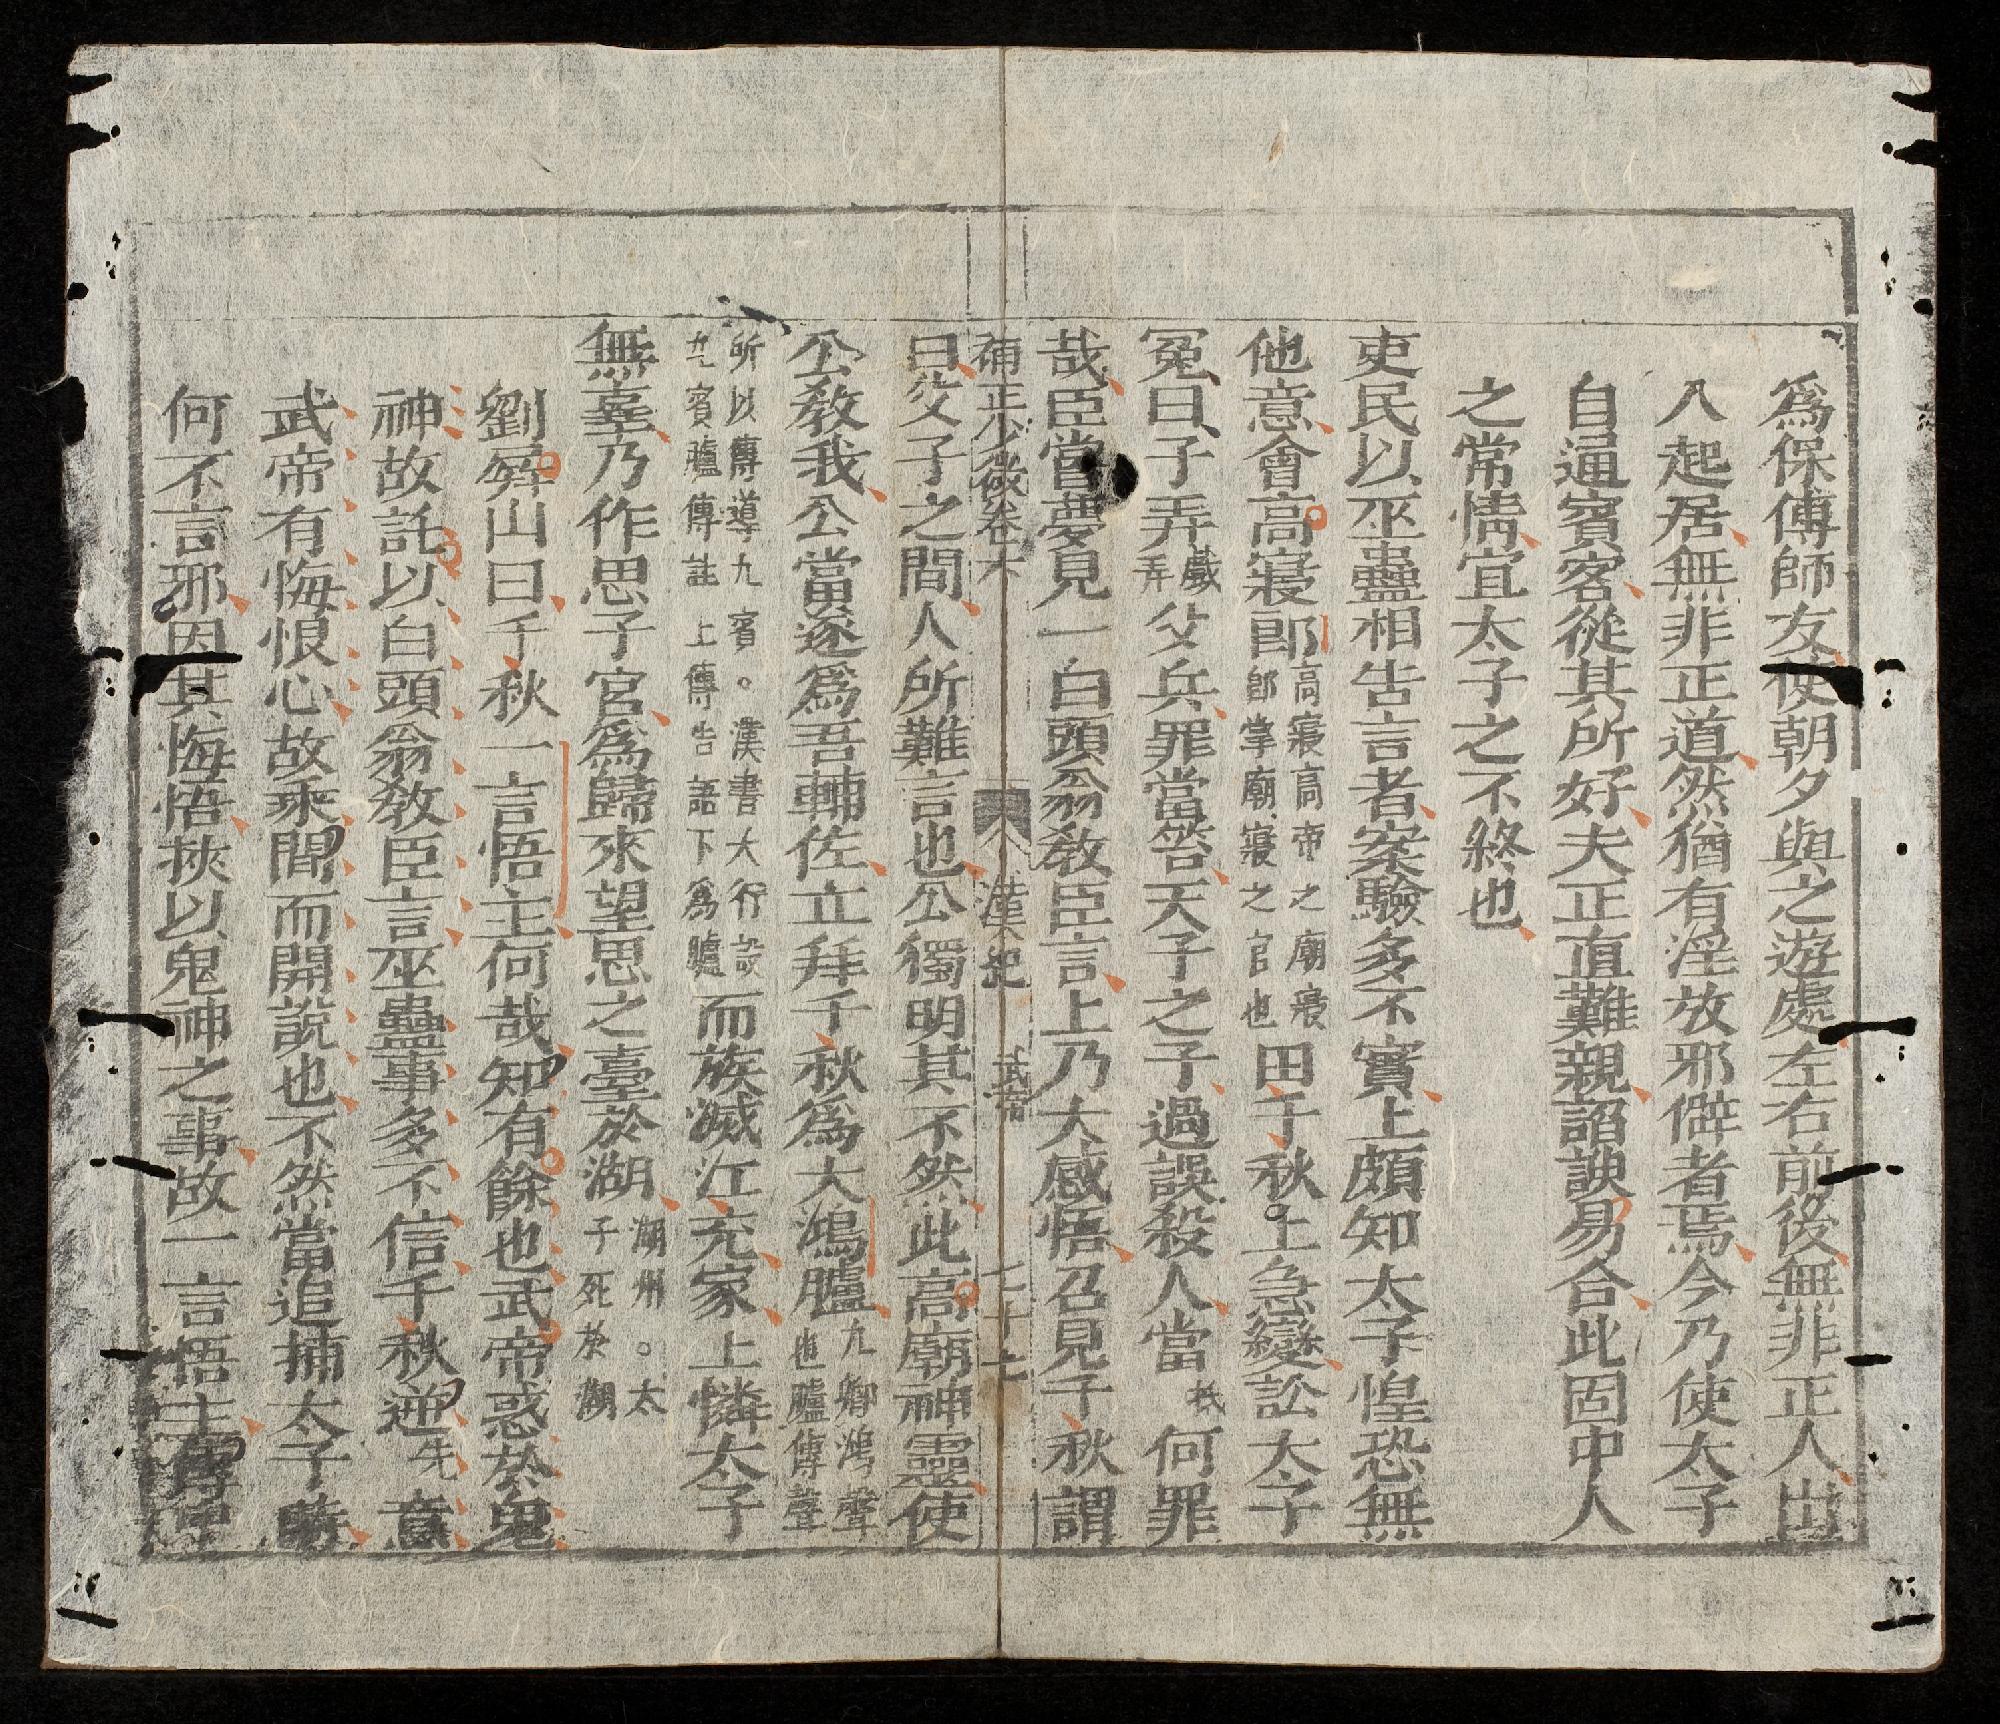 爲保傅師友使朝夕與之遊處左右前後無非正人出
入起居無非正道然猶有淫放邪僻者焉今乃使太子
自通賓客從其所好夫正直難親諂諛易合此固中人
之常情宜太子之不終也
吏民以巫蠱相告言者案驗多不實上頗知太子惶恐無
他意會高寢郎高寢高帝之廟寢郎掌廟寢之官也田千秋上急變訟太子
冤曰子弄戲弄父兵罪當笞天子之子過誤殺人當何罪
哉臣嘗夢見一白頭翁敎臣言上乃大感悟召見千秋謂
補正少微卷六 漢紀 武帝 七十七
曰父子之間人所難言也公獨明其不然此高廟神靈使
公敎我公當遂爲吾輔佐立拜千秋爲大鴻臚九卿鴻聲也臚傳聲
所以傳導九賓。漢書大行設九賓臚傳註上傳告語下爲臚而族滅江充家上憐太子
無辜乃作思子宮爲歸來望思之臺於湖湖州。太子死於湖
劉屏山曰千秋一言悟主何哉知有餘也武帝惑於鬼
神故託以白頭翁敎臣言巫蠱事多不信千秋逆先意
武帝有悔恨心故乘間而開說也不然當追捕太子時
何不言邪因其悔悟挾以鬼神之事故一言悟主